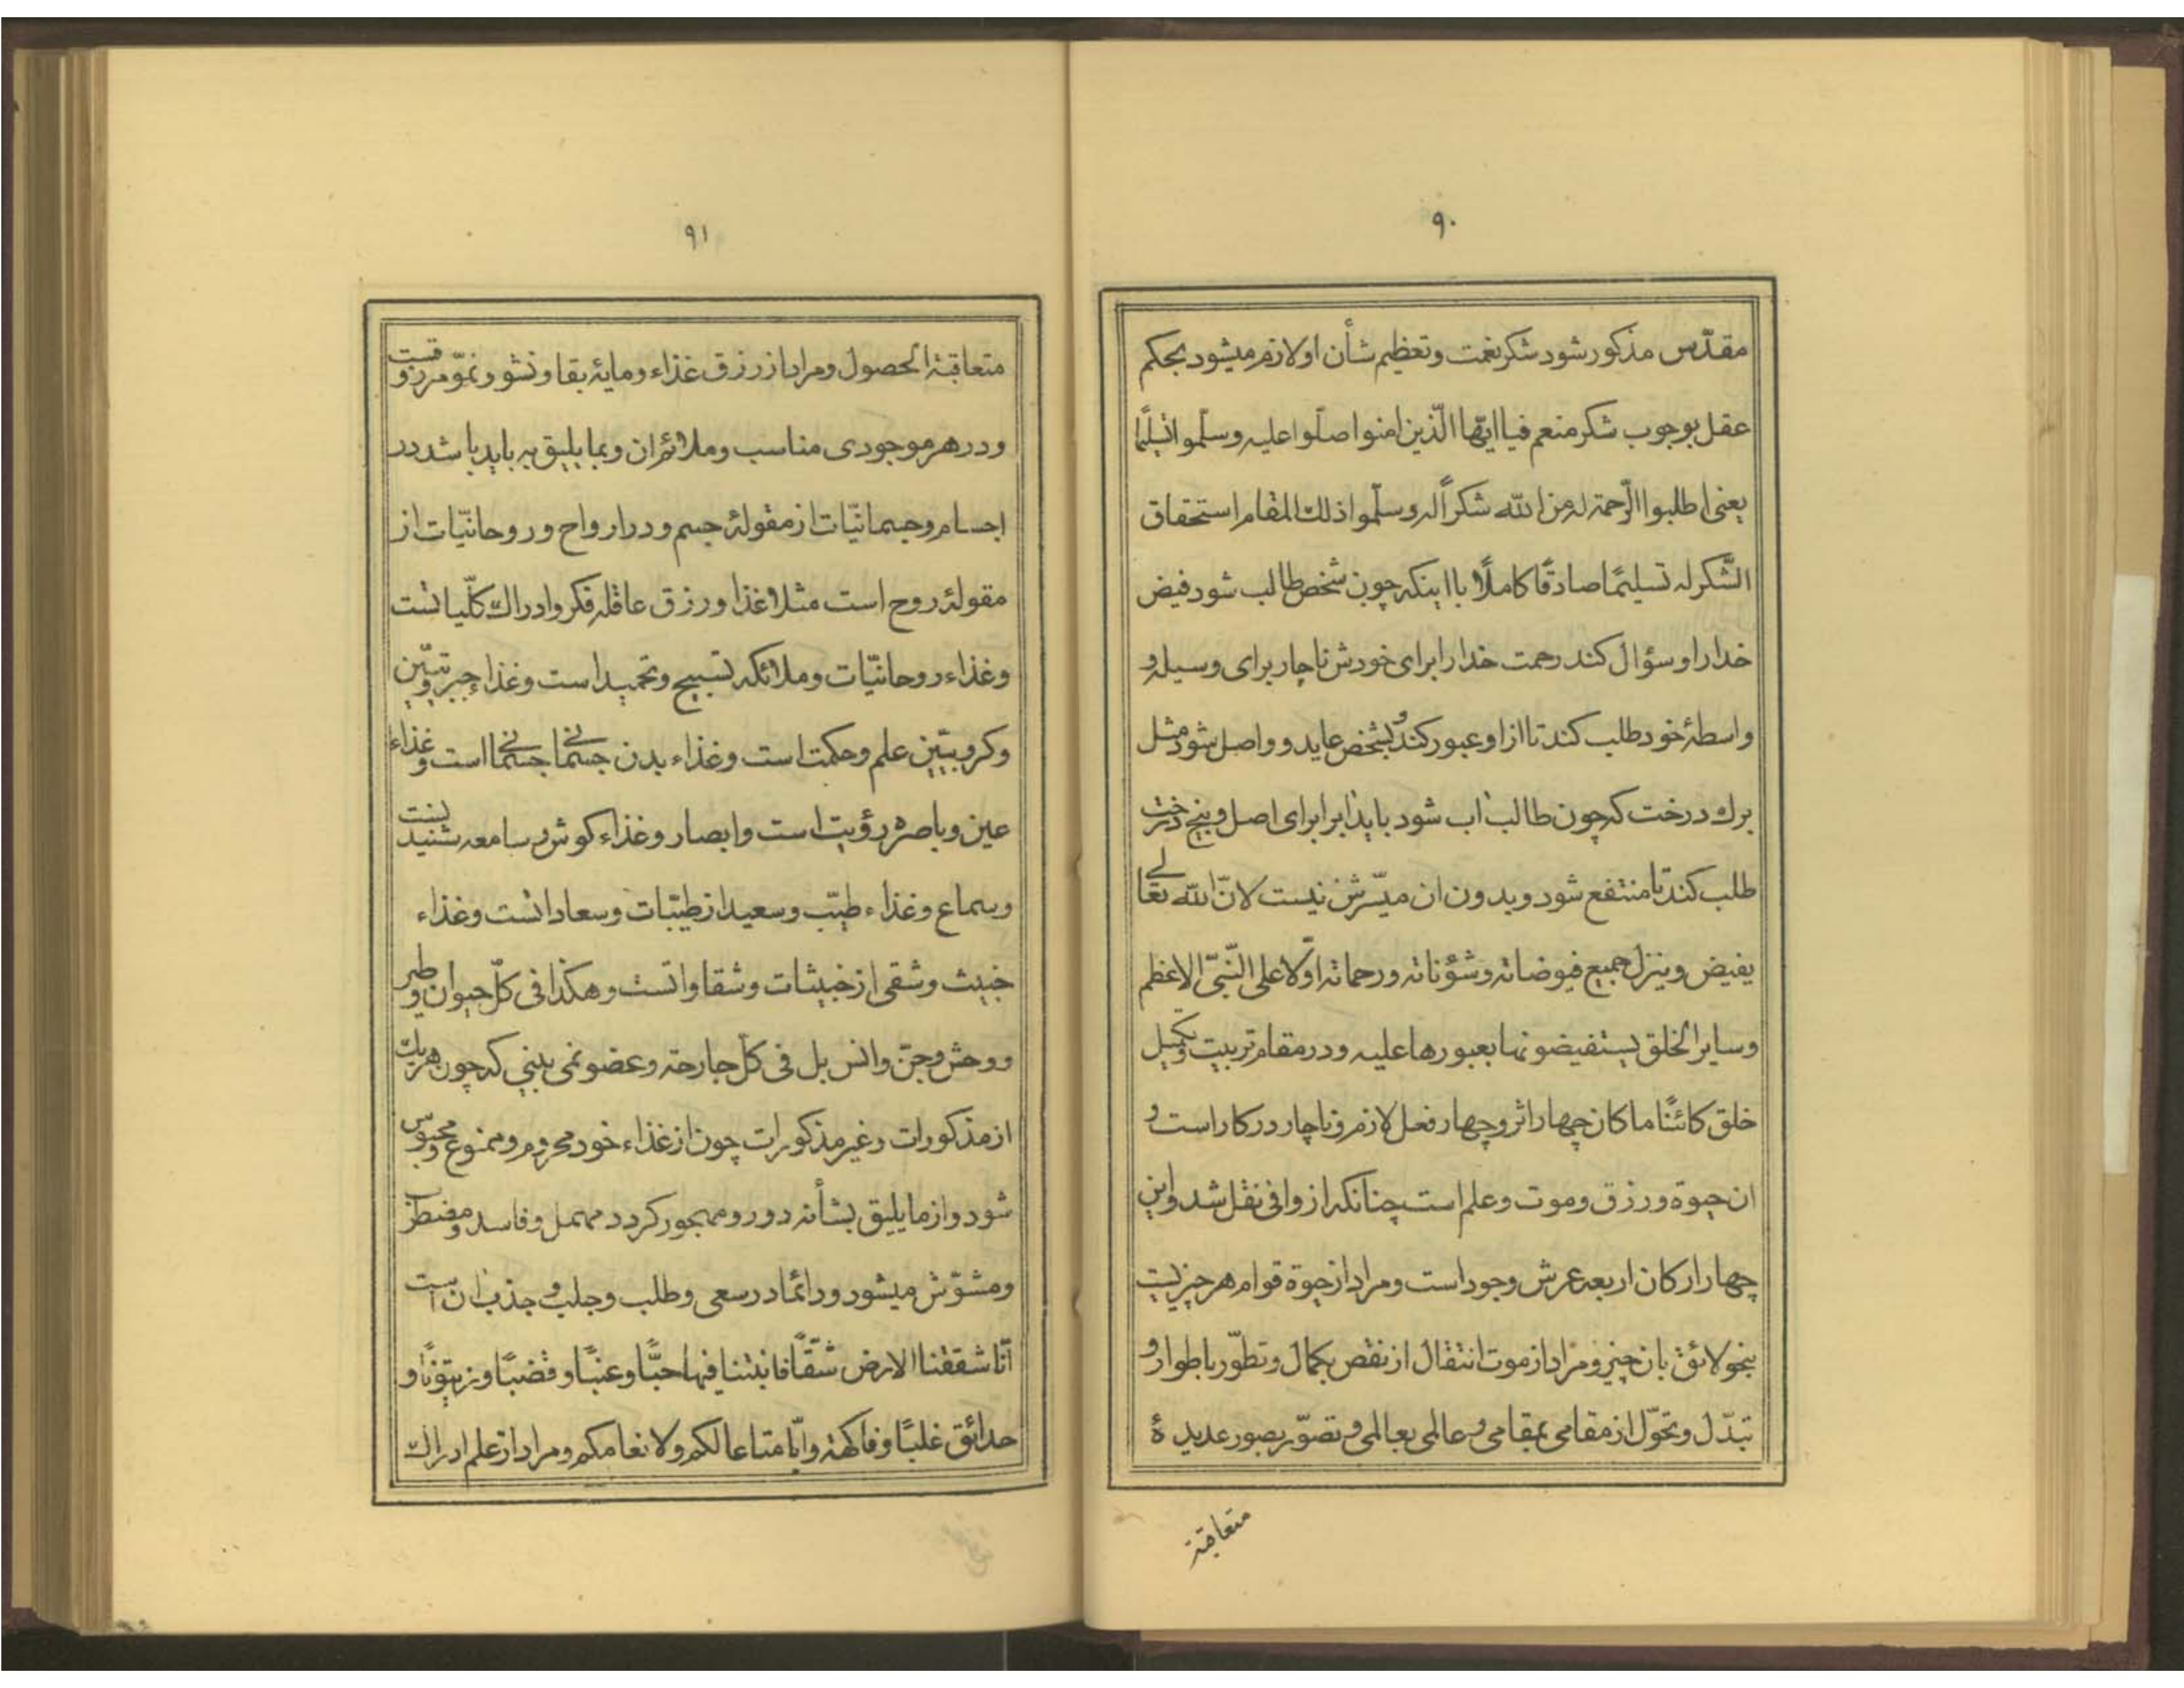 ٩٠
مقدّس مذکور شود شکر نعمت و تعظیم شأن او لازم میشود بحکم
عقل بوجوب شکر منعم فیا ایّها الّذین امنوا صلّوا علیه وسلّموا تسلیمًا
یعنی اطلبوا الرّحمة له من الله شکراً له وسلّموا ذلك المقام استحقاق
الشّکر له تسلیمًا صادقًا کاملًا با اینکه چون شخص طالب شود فیض
خدا را و سؤال کند رحمت خدا را برای خودش ناچار برای وسیله و
واسطهٔ خود طلب کند تا از او عبور کند و بشخص عاید و واصل شود مثل
برك درخت که چون طالب اب شود باید ابرا برای اصل و بیخ درخت
طلب کند تا منتفع شود و بدون ان میسّرش نیست لانّ الله تعالی
یفیض وینزل جمیع فیوضاته وشؤناته ورحماته اوّلا علی النّبیّ الاعظم
وسایر الخلق یستفیضونها بعبورها علیه و در مقام تربیت و تکمیل
خلق کائنًا ما کان چهار اثر و چهار فعل لازم و ناچار در کار است و
ان حیوة و رزق و موت و علم است چنانکه از وافی نقل شد و این
چهار ارکان اربعه عرش وجود است و مراد از حیوة قوام هر چیزیست
بنحو لائق بان چیز و مراد از موت انتقال از نقص بکمال و تطوّر باطوار و
تبدّل و تحوّل از مقامی بمقامی و عالمی بعالمی و تصوّر بصور عدیدهٔ
متعاقبة
٩١
متعاقبة الحصول و مراد از رزق غذاء و مایهٔ بقا و نشو و نموّ مرزوقست
و در هر موجودی مناسب و ملائم ان و بما یلیق به باید باشد در
اجسام و جسمانیّات از مقولهٔ جسم و در ارواح و روحانیّات از
مقولهٔ روح است مثلا غذا و رزق عاقله فکر و ادراك کلّیاتست
و غذاء روحانیّات و ملائکه تسبیح و تحمید است و غذاء جبروتیّین
و کروبیّین علم و حکمت است و غذاء بدن جسمانی جسمانی است و غذاء
عین و باصره رؤیت است و ابصار و غذاء کوش و سامعه شنیدنست
و سماع و غذاء طیّب و سعید از طیّبات و سعاداتست و غذاء
خبیث و شقی از خبیثات و شقاواتست و هکذا فی کلّ حیوان و طیر
و وحش و جنّ و انس بل فی کلّ جارحة و عضو نمی بینی که چون هریك
از مذکورات و غیر مذکورات چون از غذاء خود محروم و ممنوع و محبوس
شود و از ما یلیق بشأنه دور و مهجور کردد مهمل و فاسد و مضطرب
و مشوّش میشود و دائما در سعی و طلب و جلب و جذب ان است
انّا شققنا الارض شقّاً فانبتنا فیها حبًّا وعنبًا وقضبًا وزیتونًا و
حدائق غلبًا وفاکهة وابّا متاعا لکم ولانعامکم و مراد از علم ادراك